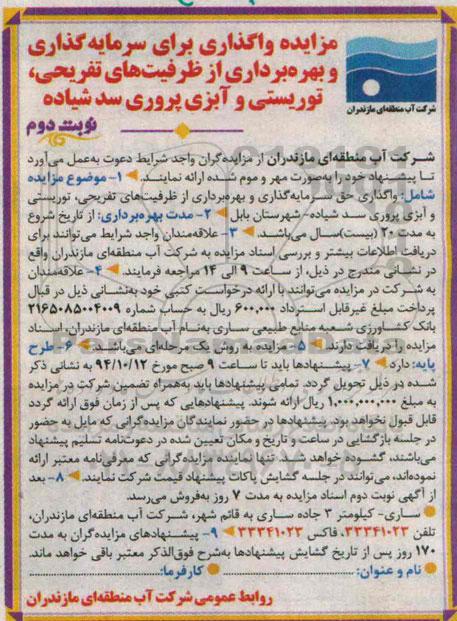 مزایده واگذاری برای سرمایه‌گذاری
و بهره‌برداری از ظرفیت‌های تفریحی،
توریستی و آبزی پروری سد شیاده
شرکت آب منطقه‌ای مازندران
نوبت دوم
شرکت آب منطقه‌ای مازندران از مزایده‌گران واجد شرایط دعوت به‌عمل می‌آورد
تا پیشنهاد خود را به‌صورت مهر و موم شده ارائه نمایند. ۱- موضوع مزایده
شامل: واگذاری حق سرمایه‌گذاری و بهره‌برداری از ظرفیت‌های تفریحی، توریستی
و آبزی پروری سد شیاده- شهرستان بابل ۲- مدت بهره‌برداری: از تاریخ شروع
به مدت ۲۰ (بیست)سال می‌باشد. ۳- علاقه‌مندان واجد شرایط می‌توانند برای
دریافت اطلاعات بیشتر و بررسی اسناد مزایده به شرکت آب منطقه‌ای مازندران واقع
در نشانی مندرج در ذیل، از ساعت ۹ الی ۱۴ مراجعه فرمایند. ۴- علاقه‌مندان
به شرکت در مزایده می‌توانند با ارائه درخواست کتبی خود به‌نشانی ذیل در قبال
پرداخت مبلغ غیرقابل استرداد ۶۰۰,۰۰۰ ریال به حساب شماره ۲۱۶۵۰۸۵۰۰۴۰۰۹
بانک کشاورزی شعبه منابع طبیعی ساری به‌نام آب منطقه‌ای مازندران، اسناد
مزایده را دریافت دارند. ۵- مزایده به روش یک مرحله‌ای می‌باشد. ۶- طرح
پایه: دارد ۷- پیشنهادها باید تا ساعت ۹ صبح مورخ ۹۴/۱۰/۱۲ به نشانی ذکر
شده در ذیل تحویل گردد. تمامی پیشنهادها باید به‌همراه تضمین شرکت در مزایده
به مبلغ ۱,۰۰۰,۰۰۰,۰۰۰ ریال ارائه شوند. پیشنهادهایی که پس از زمان فوق ارائه گردد
قابل قبول نخواهد بود. پیشنهادها در حضور نمایندگان مزایده‌گرانی که مایل به حضور
در جلسه بازگشایی در ساعت و تاریخ و مکان تعیین شده در دعوت‌نامه تسلیم پیشنهاد
می‌باشند، گشوده خواهد شد. تنها نماینده مزایده‌گرانی که معرفی‌نامه معتبر ارائه
نموده‌اند، می‌توانند در جلسه گشایش پاکات پیشنهاد قیمت شرکت نمایند. ۸- بعد
از آگهی نوبت دوم اسناد مزایده به مدت ۷ روز به‌فروش می‌رسد.
ساری- کیلومتر ۳ جاده ساری به قائم شهر، شرکت آب منطقه‌ای مازندران،
تلفن ۳۳۳۴۱۰۲۳، فاکس ۳۳۳۴۱۰۲۳ ۹- پیشنهادهای مزایده‌گران به مدت
۱۷۰ روز پس از تاریخ گشایش پیشنهادها به‌شرح فوق‌الذکر معتبر باقی خواهد ماند.
نام و عنوان: .......................... کارفرما: ..........................
روابط عمومی شرکت آب منطقه‌ای مازندران